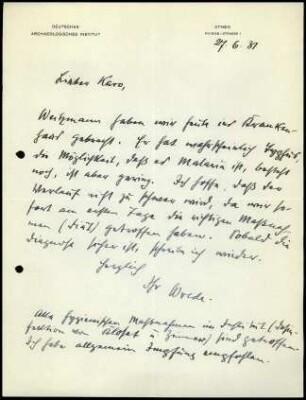 DEUTSCHES
ARCHAEOLOGISCHES INSTITUT
ATHEN
27. 6. 31
Lieber Karo,
Weitzmann haben wir heute ins Kranken-
haus gebracht. Er hat wahrscheinlich Typhus,
die Möglichkeit, daß es Malaria ist, besteht
noch, ist aber gering. Ich hoffe, daß der
Verlauf nicht zu schwer wird, da wir so-
fort am ersten Tage die richtigen Maßnah-
men (Diät) getroffen haben. Sobald die
Diagnose sicher ist, schreibe ich wieder.
Herzlich
Ihr Wrede.
Alle hygienischen Maßnahmen im Institut (Desin-
fektion von Klosett u Zimmer) sind getroffen.
Ich habe allgemein Impfung empfohlen.